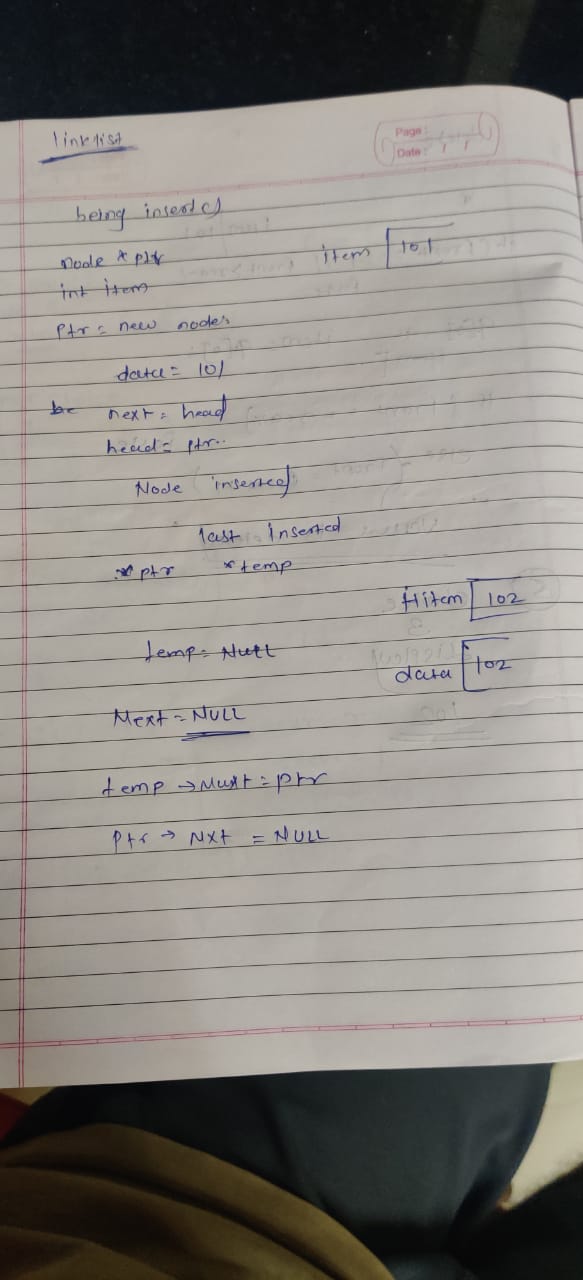 link list
Page :
Date : / /
being insert
Node * ptr item 101
int item
Ptr = new nodes
data = 101
be next = head
head = ptr..
Node inserted
last Inserted
* ptr * temp
item 102
temp = Null
data 102
Next = NULL
temp → Nuxt = ptr
Ptr → Nxt = NULL